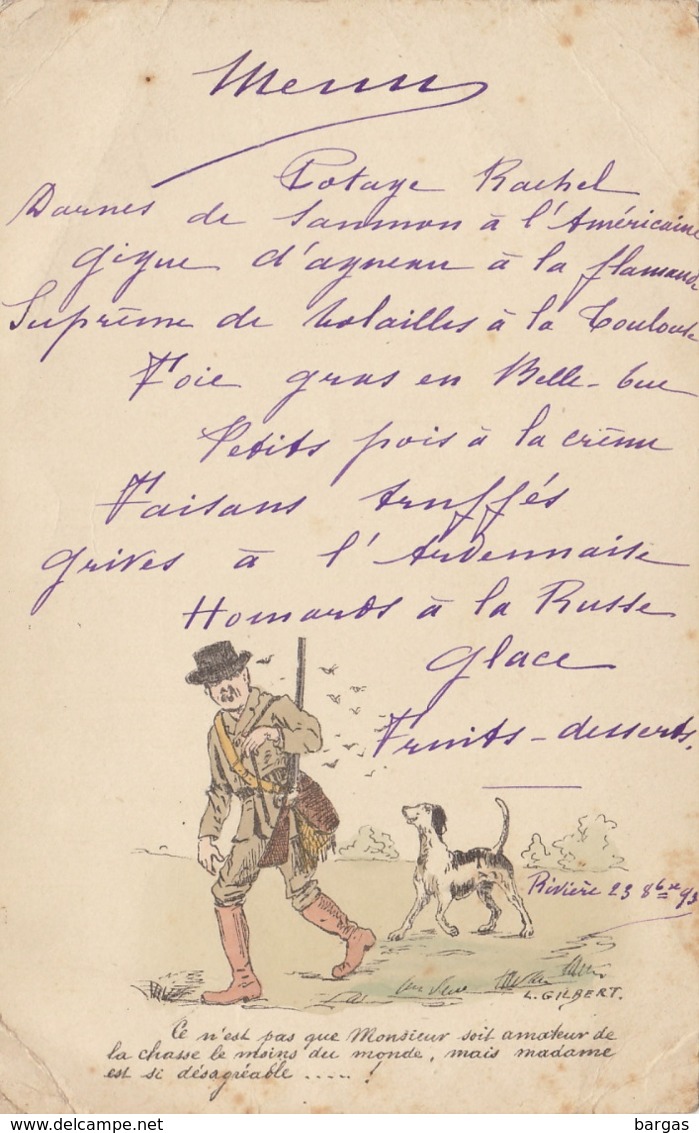 Menu
Potage Rachel
Darnes de Saumon à l'Américaine
Gigue d'agneau à la flamande
Suprême de Volailles à la Toulouse
Foie gras en Belle-vue
Petits pois à la crème
Faisans truffés
Grives à l'Ardennaise
Homards à la Russe
Glace
Fruits - desserts.
Rivière 23 8bre 93
L. GILBERT.
Ce n'est pas que Monsieur soit amateur de
la chasse le moins du monde, mais madame
est si désagréable ..... !
delcampe.net
bargas